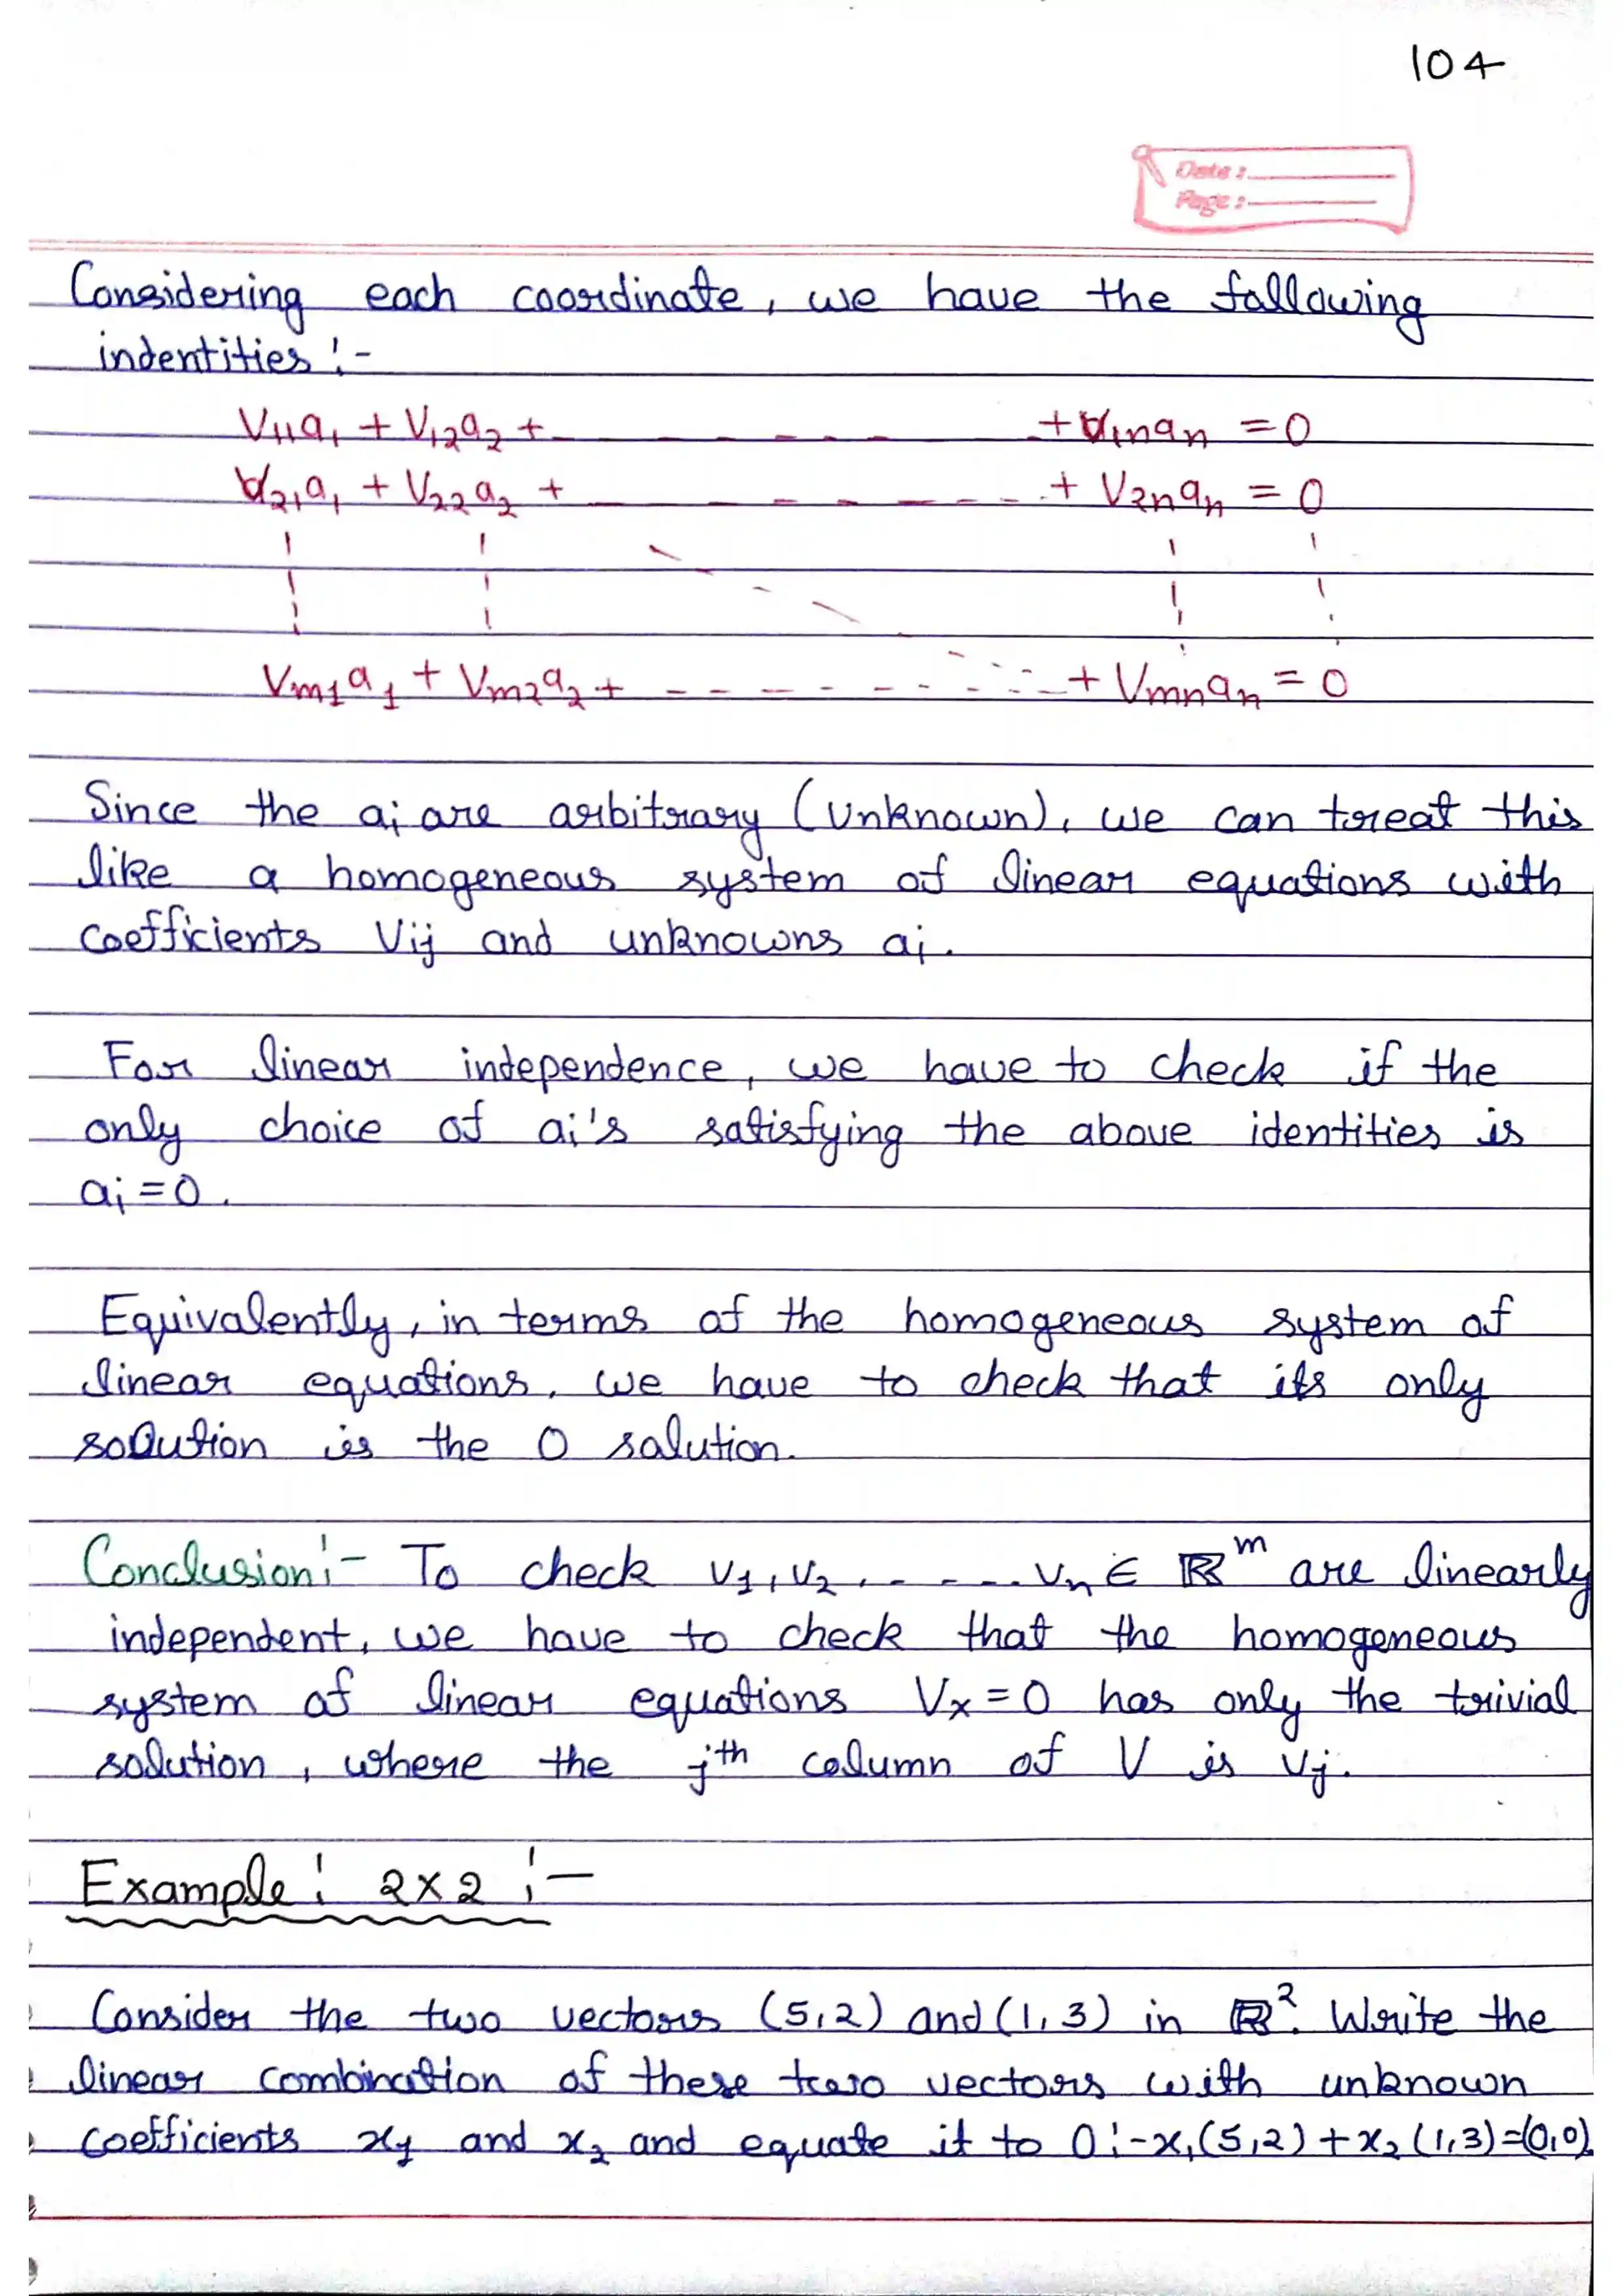 104
Date :
Page :
Considering each coordinate, we have the following
indentities :-
V₁₁a₁ + V₁₂a₂ + - - - - - + V₁ₙaₙ = 0
V₂₁a₁ + V₂₂a₂ + - - - - - + V₂ₙaₙ = 0
Vₘ₁a₁ + Vₘ₂a₂ + - - - - - + Vₘₙaₙ = 0
Since the aᵢ are arbitrary (unknown), we can treat this
like a homogeneous system of linear equations with
coefficients Vᵢⱼ and unknowns aᵢ.
For linear independence, we have to check if the
only choice of aᵢ's satisfying the above identities is
aᵢ = 0.
Equivalently, in terms of the homogeneous system of
linear equations, we have to check that its only
solution is the 0 solution.
Conclusion :- To check v₁, v₂, - - - - - vₙ ∈ ℝᵐ are linearly
independent, we have to check that the homogeneous
system of linear equations Vx = 0 has only the trivial
solution, where the jᵗʰ column of V is vⱼ.
Example : 2×2 :-
Consider the two vectors (5,2) and (1,3) in ℝ². Write the
linear combination of these two vectors with unknown
coefficients x₁ and x₂ and equate it to 0 :- x₁(5,2) + x₂(1,3) = (0,0).